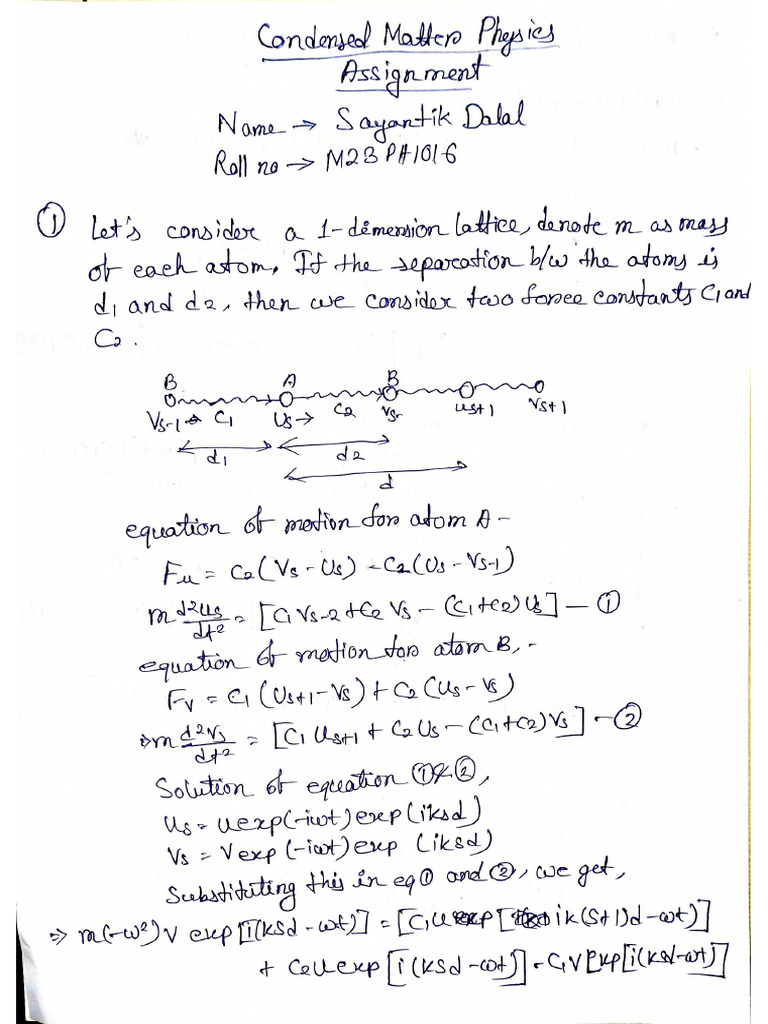 Condensed Matter Physics
Assignment
Name → Sayantik Dalal
Roll no → M23PH1016
① Let's consider a 1-dimension lattice, denote m as mass
of each atom. If the separation b/w the atoms is
d₁ and d₂, then we consider two force constants C₁ and
C₂.
B A B
Vs-1 → C₁ Us → C₂ Vs Us+1 Vs+1
d₁ d₂
d
equation of motion for atom A -
Fu = C₂(Vs - Us) - C₂(Us - Vs-1)
m d²us/dt² = [C₁Vs-2 + C₂Vs - (C₁+C₂)Us] — ①
equation of motion for atom B, -
Fv = C₁(Us+1 - Vs) + C₂(Us - Vs)
⇒ m d²vs/dt² = [C₁Us+1 + C₂Us - (C₁+C₂)Vs] — ②
Solution of equation ① & ②,
Us = u exp(-iωt) exp(iksd)
Vs = V exp(-iωt) exp(iksd)
Substituting this in eq ① and ②, we get,
⇒ m(-ω²)V exp[i(ksd - ωt)] = [C₁u exp[ik(s+1)d - ωt)]
+ C₂u exp[i(ksd - ωt)] - C₁V[exp[i(ksd - ωt)]